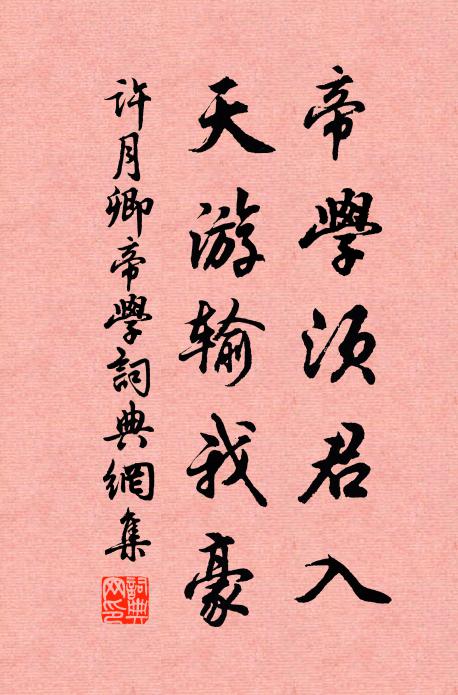 帝學須君入
天游输我豪
許月卿帝學詞典網集
詞典
网印